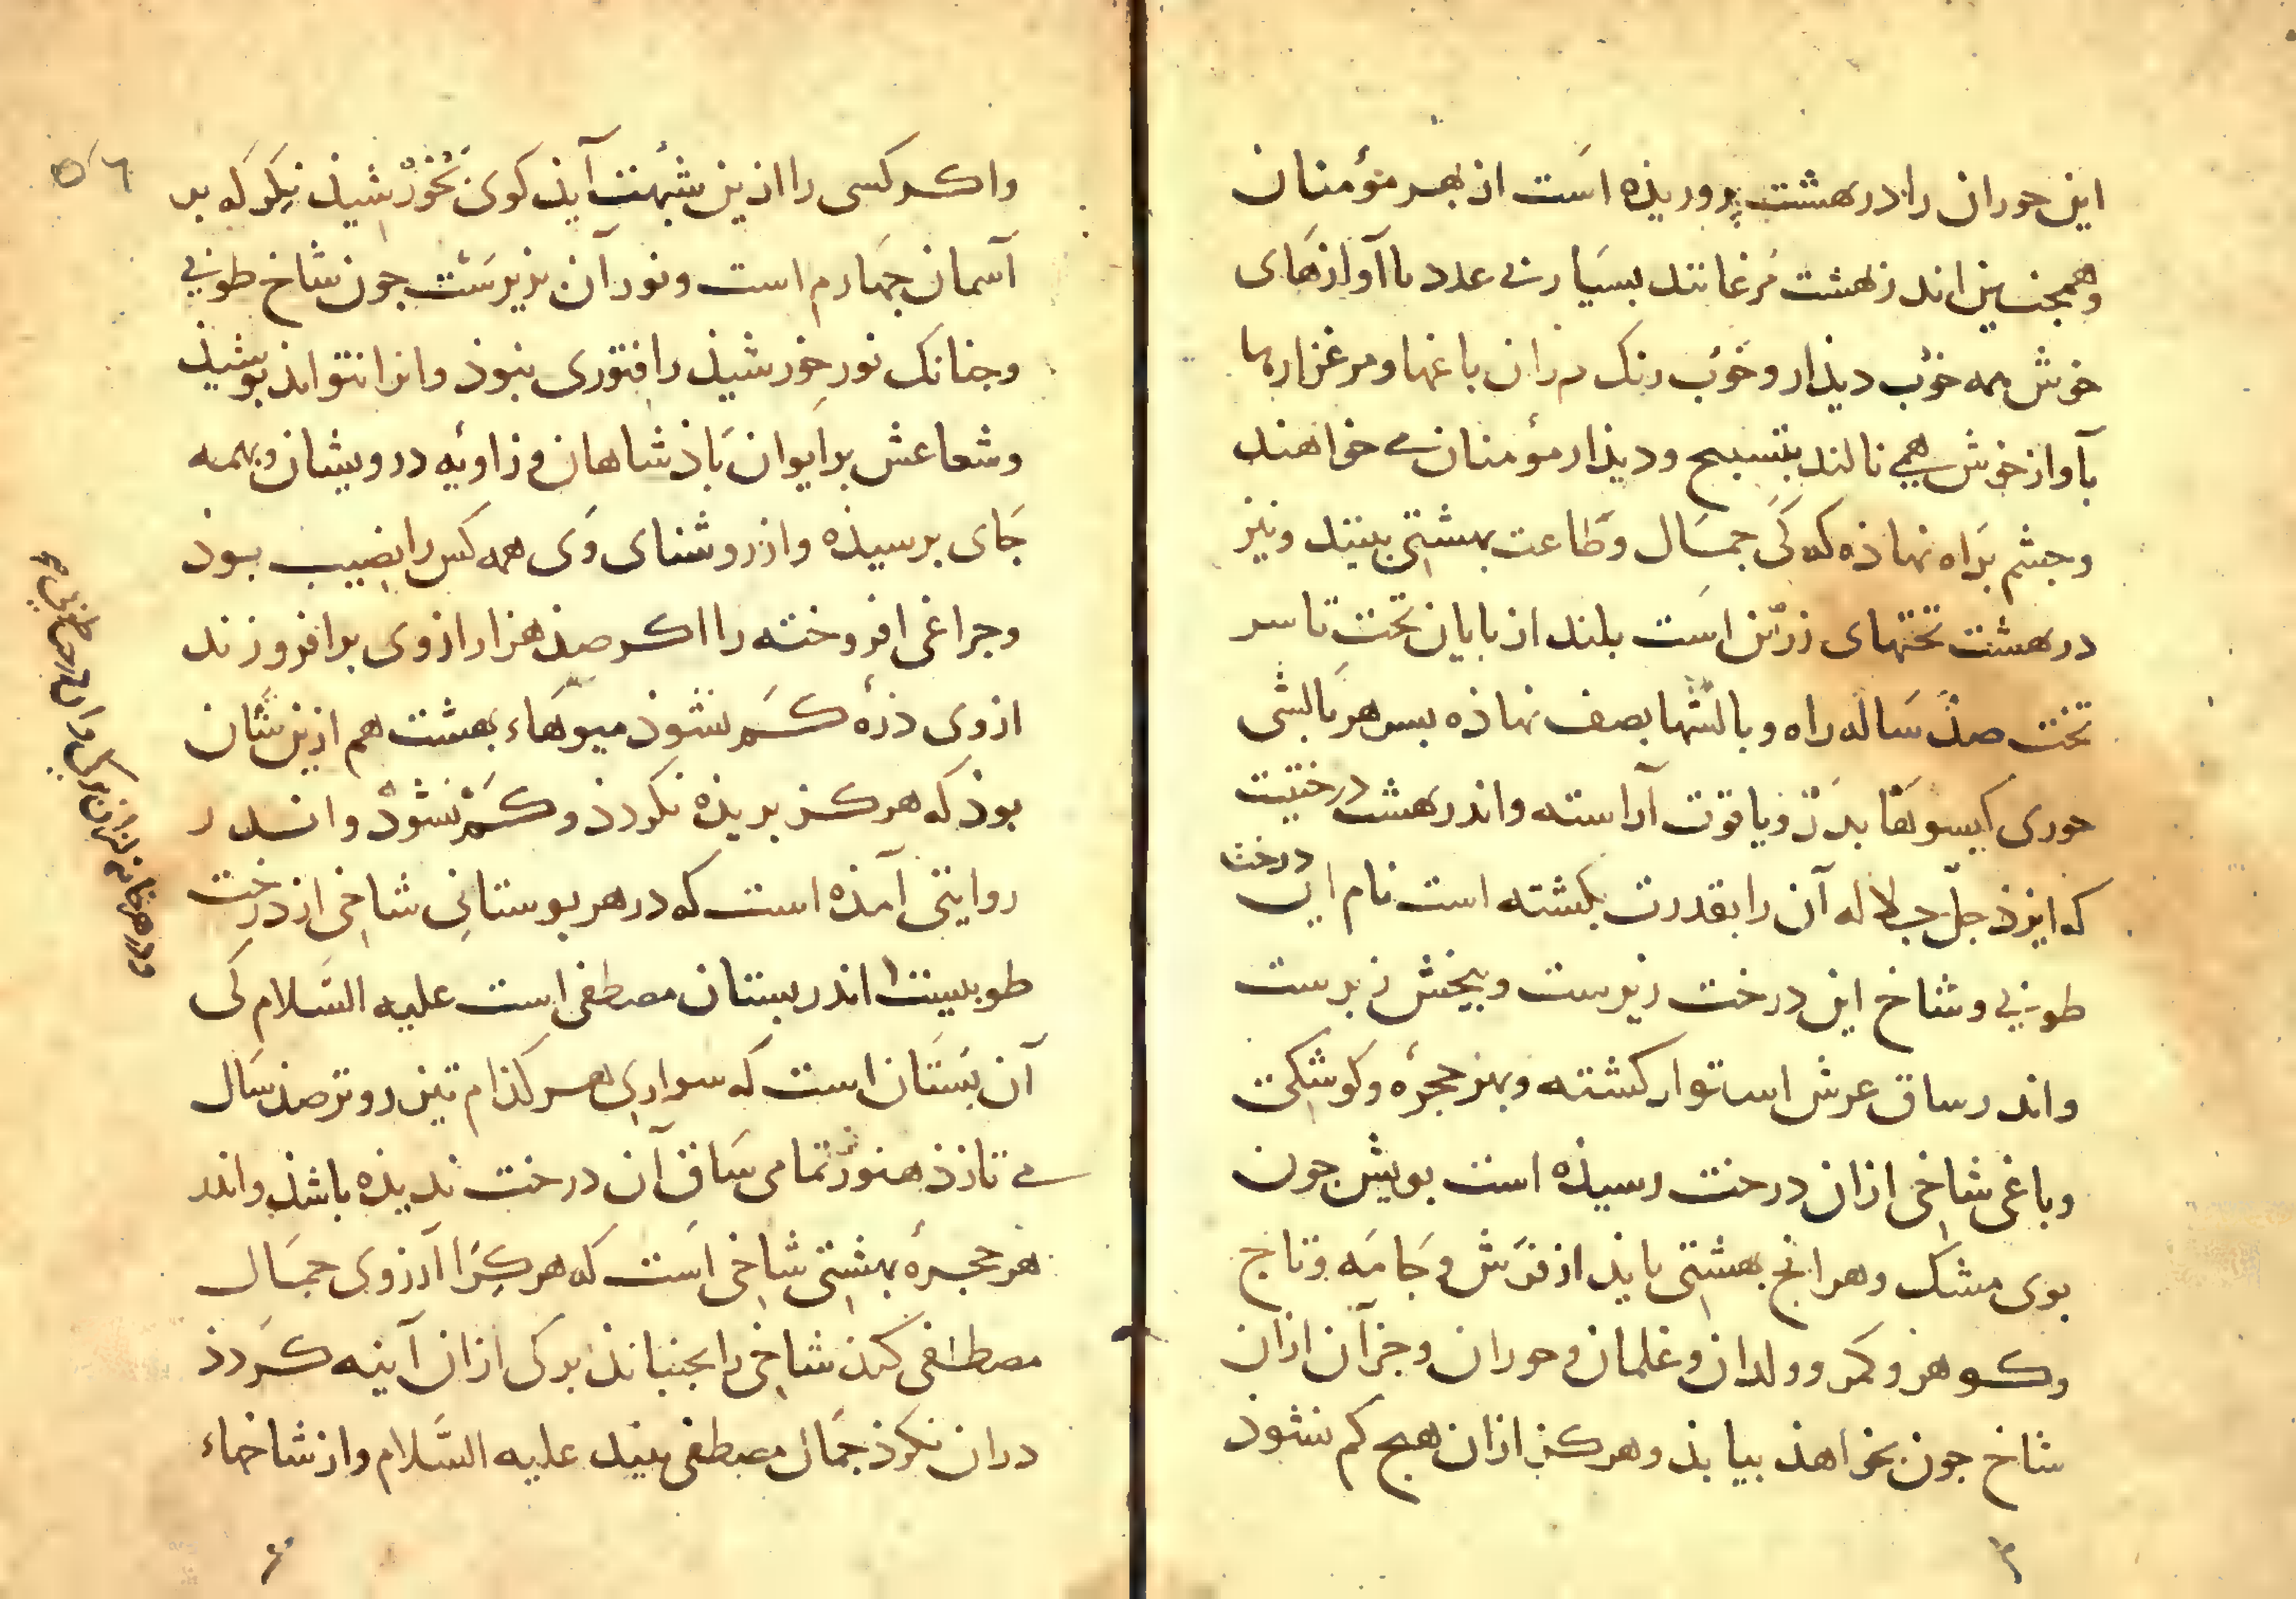 این حوران را در بهشت پروریذه است از بهر مؤمنان
وهمجنین اندر بهشت مرغانند بسیار بی عدد با آوازهای
خوش همه خوب دیذار و خوب رنک در ان باغها و مرغزارها
بآواز خوش همی نالند بتسبیح و دیذار مؤمنان می خواهند
و جشم براه نهاذه که کی جمال و طاعت بهشتی بینند و نیز
در بهشت تختهای زرین است بلند از بایان تخت تا سر
تخت صذ ساله راه و بالشها بصف نهاذه بس هر بالشی
حوری کیسوها بدر و یاقوت آراسته و اندر بهشت درختیت
که ایزذ جل جلاله آن را بقدرت بکشته است نام این درخت
طوبی و شاخ این درخت زیرست و بیخش زبرست
و اندر ساق عرش استوار کشته و بهر حجرهٔ و کوشکی
و باغی شاخی ازان درخت رسیذه است بویش جون
بوی مشک و هر انج بهشتی بایذ از فرش و جامه و تاج
و کوهر و کمر و ولدان و غلمان و حوران و جز آن ازان
شاخ جون بخواهذ بیابذ و هرکز ازان هیج کم نشوذ
۵۶
و اکر کسی را ازین شبهت آیذ کوی بخورشیذ نکر که بر
آسمان جهارم است و نور آن بزیرست جون شاخ طوبی
و جنانک نور خورشیذ را فتوری نبوذ و انرا نتوانذ بوشیذ
و شعاعش بر ایوان باذشاهان و زاویه درویشان و بهمه
جای برسیذه و از روشنای وی همه کس را نصیب بوذ
و جراغی افروخته را اکر صذ هزار ازوی برافروزند
ازوی ذرهٔ کم نشوذ میوهاء بهشت هم ازین شان
بوذ که هرکز بریذه نکردذ و کم نشوذ و اندر
روایتی آمذه است که در هر بوستانی شاخی از درخت
طوبیست اندر بستان مصطفی است علیه السلام کی
آن بستان است که سواری هر کذام تیز روتر صذ سال
می تازذ هنوز تمامی ساق آن درخت ندیذه باشذ و اندر
هر حجرهٔ بهشتی شاخی است که هر کرا آرزوی جمال
مصطفی کند شاخی را بجنبانذ برکی ازان آینه کردذ
دران نکرذ جمال مصطفی بیند علیه السلام و از شاخهاء